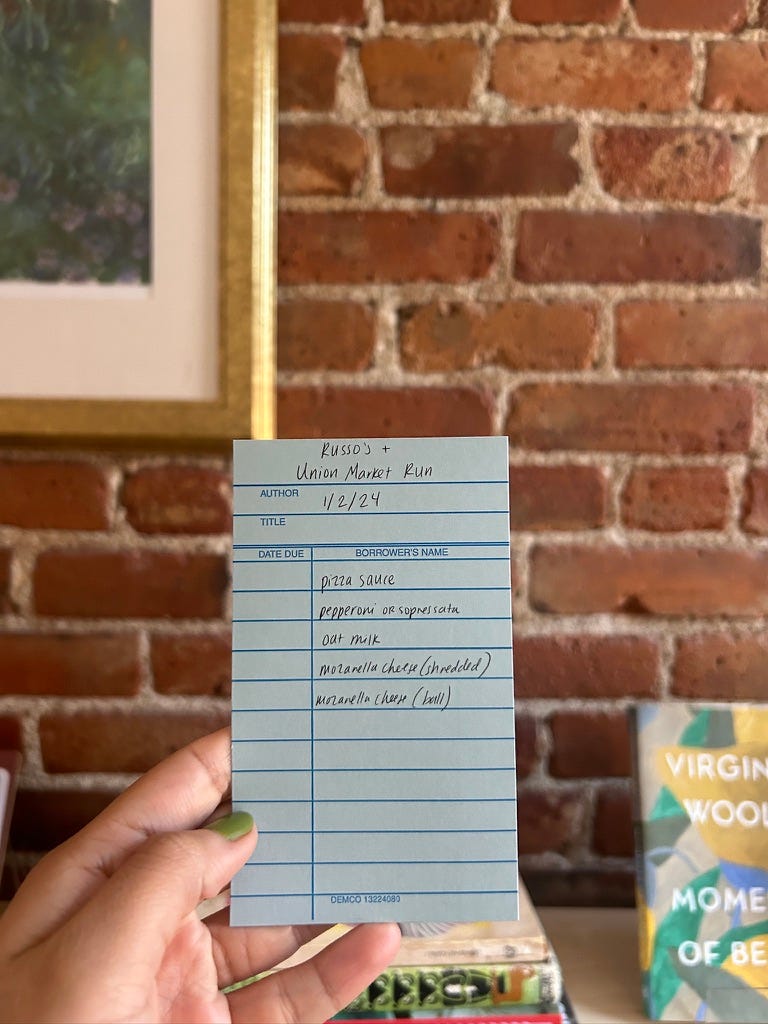 Russo's +
Union Market Run
AUTHOR 1/2/24
TITLE
DATE DUE BORROWER'S NAME
pizza sauce
pepperoni or sopressata
oat milk
mozanella cheese (shredded)
mozanella cheese (ball)
DEMCO 13224080
VIRGIN
WOOL
MOME
OF BE